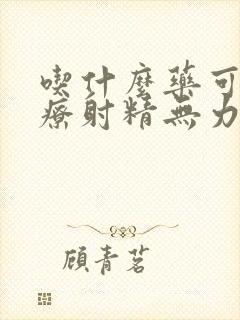 喫什麼藥可
療射精無力
顧青茗